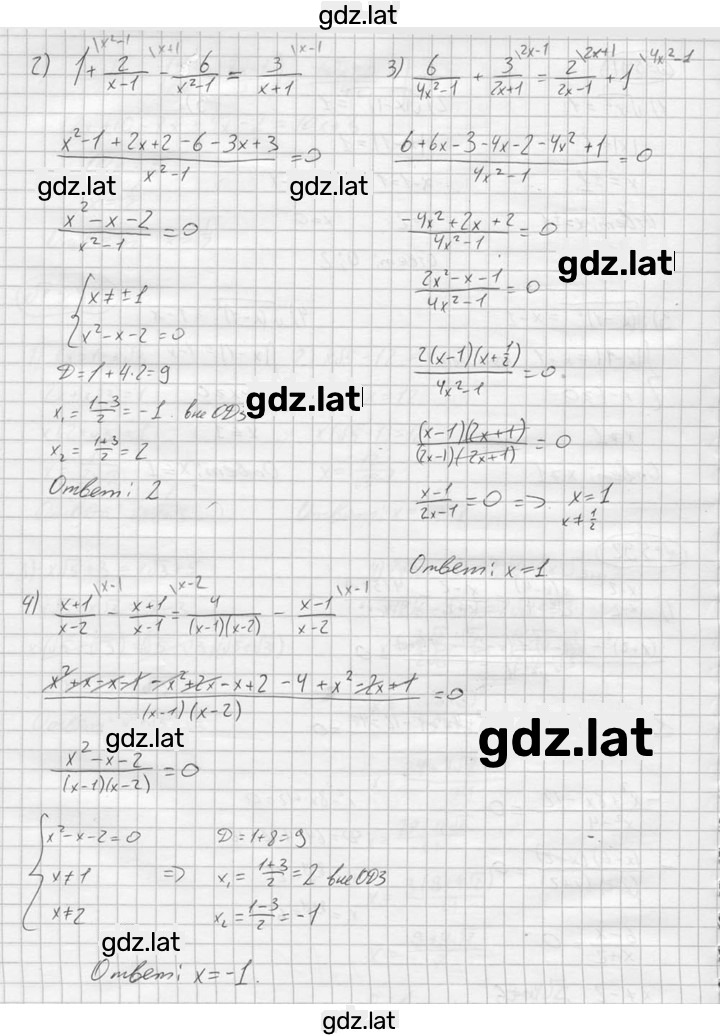 gdz.lat
2) 1 \x²-1 + 2/(x-1) \x+1 - 6/(x²-1) = 3/(x+1) \x-1
(x²-1+2x+2-6-3x+3)/(x²-1) = 0
gdz.lat
gdz.lat
(x²-x-2)/(x²-1) = 0
{ x ≠ ±1
x²-x-2=0
D=1+4·2=9
x₁ = (1-3)/2 = -1 вне ОДЗ
gdz.lat
x₂ = (1+3)/2 = 2
Ответ: 2
3) 6/(4x²-1) + 3/(2x+1) \2x-1 = 2/(2x-1) \2x+1 + 1 \4x²-1
(6+6x-3-4x-2-4x²+1)/(4x²-1) = 0
(-4x²+2x+2)/(4x²-1) = 0
gdz.lat
(2x²-x-1)/(4x²-1) = 0
2(x-1)(x+1/2)/(4x²-1) = 0
(x-1)(2x+1)/(2x-1)(2x+1) = 0
(x-1)/(2x-1) = 0 => x=1
x≠1/2
Ответ: x=1
4) (x+1)/(x-2) \x-1 - (x+1)/(x-1) \x-2 = 4/((x-1)(x-2)) - (x-1)/(x-2) \x-1
(x²+x-x-1-x²+2x-x+2-4+x²-2x+1)/((x-1)(x-2)) = 0
gdz.lat
gdz.lat
(x²-x-2)/((x-1)(x-2)) = 0
{ x²-x-2=0 D=1+8=9
x≠1 => x₁ = (1+3)/2 = 2 вне ОДЗ
x≠2 x₂ = (1-3)/2 = -1
gdz.lat
Ответ: x=-1.
gdz.lat